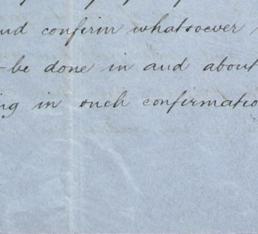 and confirm whatsoever
be done in and about
ing in such confirmatio